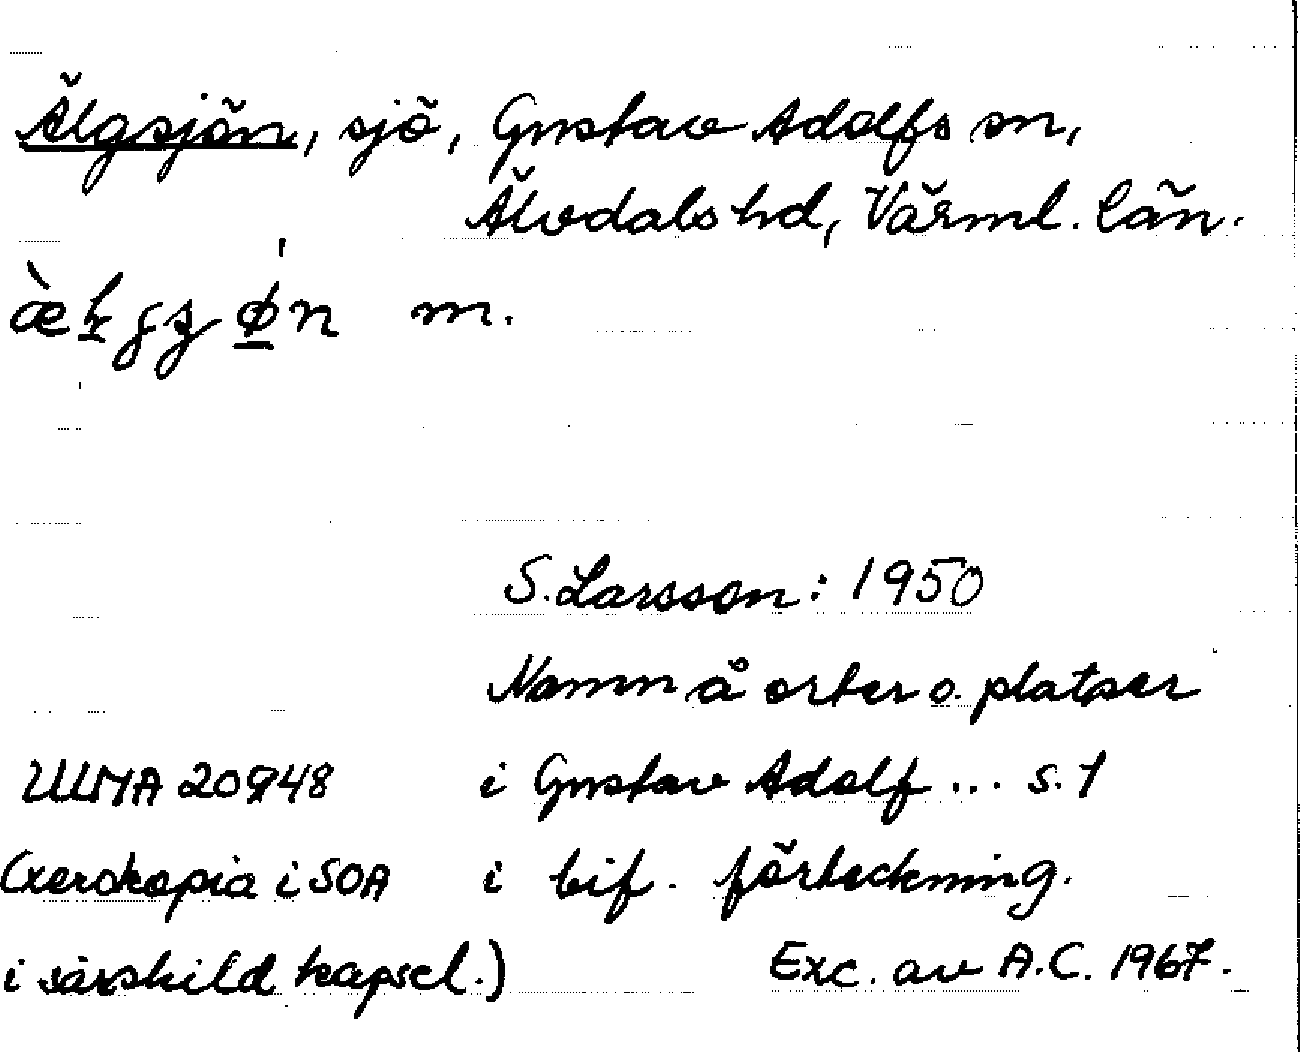 Älgsjön, sjö, Gustav Adolfs sn,
Älvdals hd, Värml. län.
m.
S. Larsson: 1950
Namn å orter o. platser
ULMA 20948 i Gustav Adolf ... s. 1
(xerokopia i SOA i bif. förteckning.
i särskild kapsel.) Exc. av A.C. 1967.